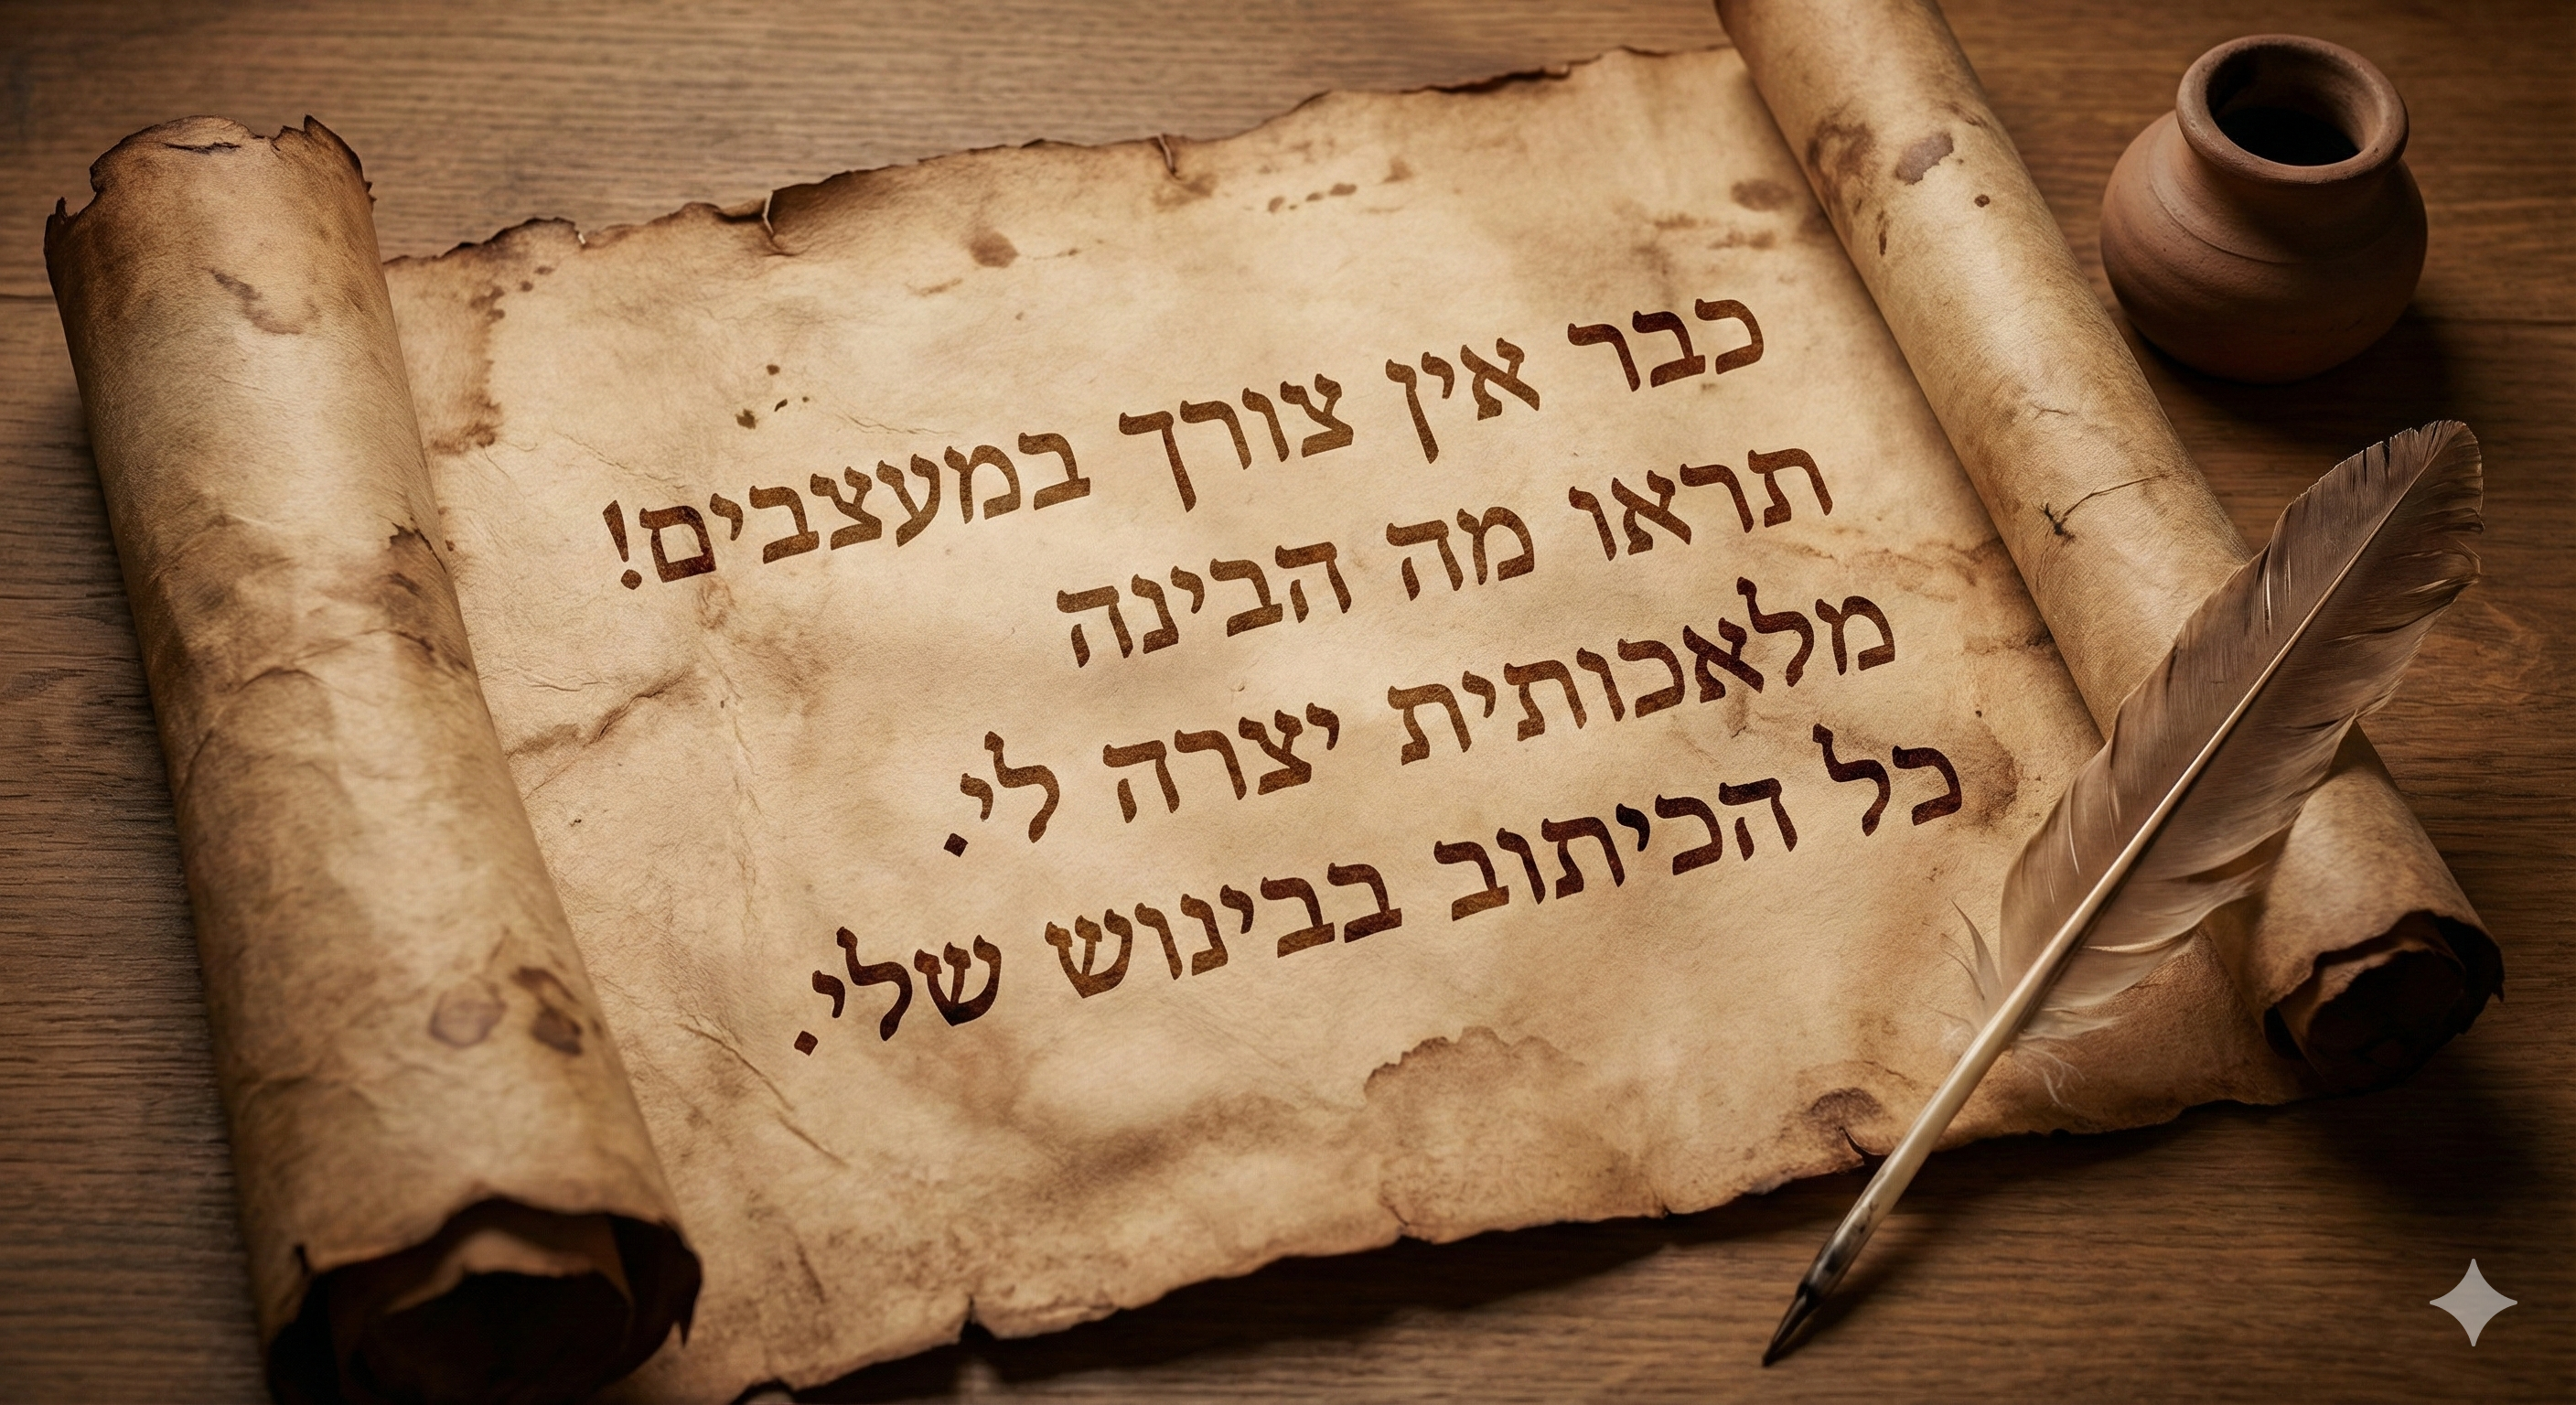 כבר אין צורך במעצבים!
תראו מה הבינה
מלאכותית יצרה לי.
כל הכיתוב בבינוש שלי.